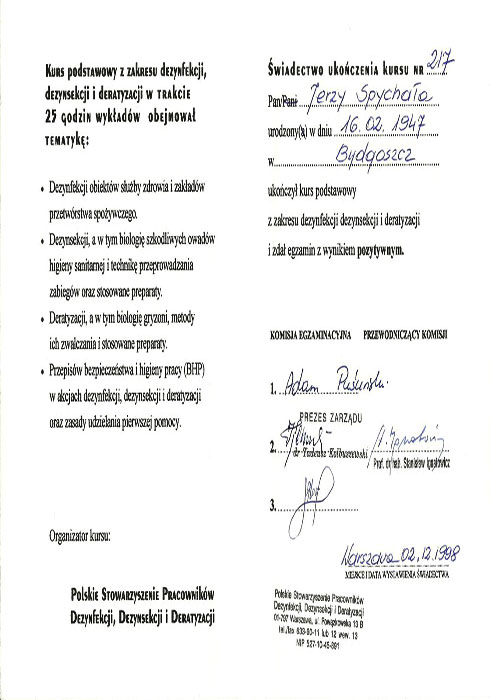 Kurs podstawowy z zakresu dezynfekcji,
dezynsekcji i deratyzacji w trakcie
25 godzin wykładów obejmował
tematykę:
• Dezynfekcji obiektów służby zdrowia i zakładów
przetwórstwa spożywczego.
• Dezynsekcji, a w tym biologię szkodliwych owadów
higieny sanitarnej i technikę przeprowadzania
zabiegów oraz stosowane preparaty.
• Deratyzacji, a w tym biologię gryzoni, metody
ich zwalczania i stosowane preparaty.
• Przepisów bezpieczeństwa i higieny pracy (BHP)
w akcjach dezynfekcji, dezynsekcji i deratyzacji
oraz zasady udzielania pierwszej pomocy.
Organizator kursu:
Polskie Stowarzyszenie Pracowników
Dezynfekcji, Dezynsekcji i Deratyzacji
Świadectwo ukończenia kursu nr 217
Pan/Pani Jerzy Spychała
urodzony(a) w dniu 16.02.1947
w Bydgoszcz
ukończył kurs podstawowy
z zakresu dezynfekcji dezynsekcji i deratyzacji
i zdał egzamin z wynikiem pozytywnym.
KOMISJA EGZAMINACYJNA PRZEWODNICZĄCY KOMISJI
1. Adam
PREZES ZARZĄDU
2. dr Tadeusz Kolbuszewski Prof. dr hab. Stanisław Ignatowicz
3.
Warszawa 02.12.1998
MIEJSCE I DATA WYSTAWIENIA ŚWIADECTWA
Polskie Stowarzyszenie Pracowników
Dezynfekcji, Dezynsekcji i Deratyzacji
01-797 Warszawa, ul. Powązkowska 13 B
tel./fax 633-90-11 lub 12 wew. 13
NIP 527-10-45-891